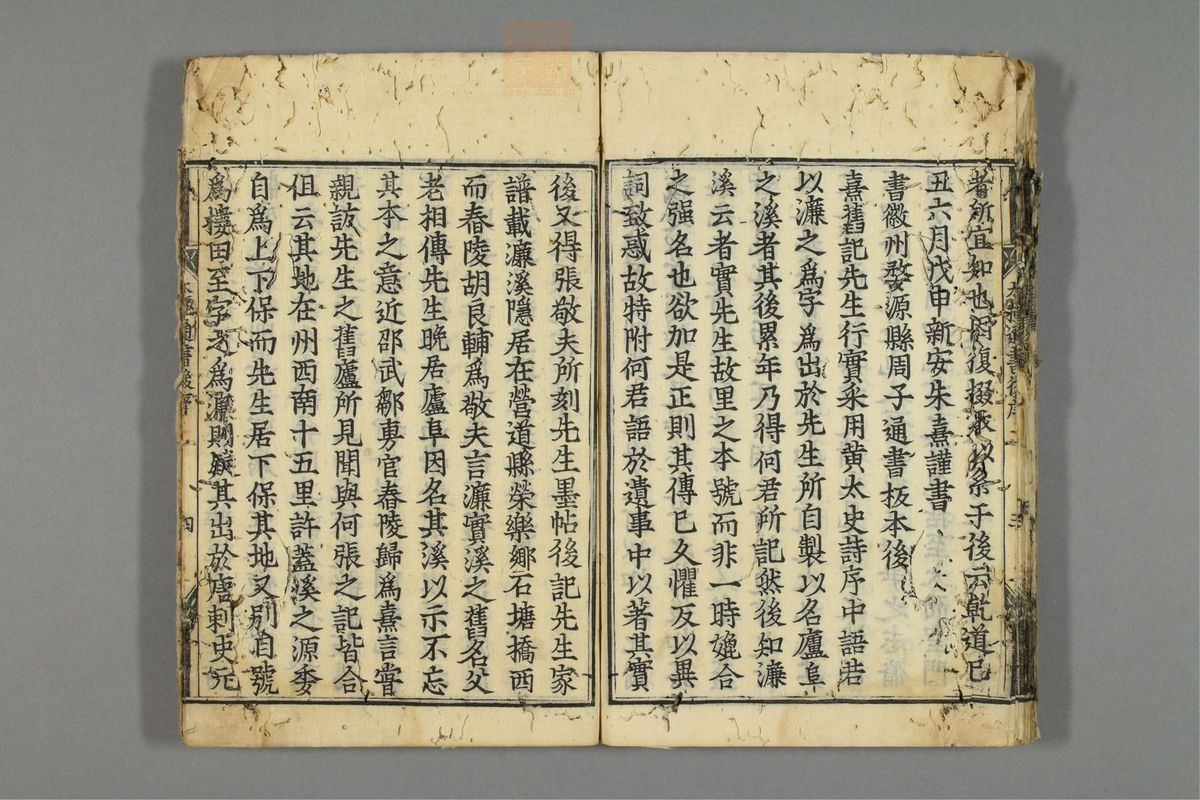 者所宜知也因復掇取以系于後云乾道已
丑六月戊申新安朱熹謹書
書徽州婺源縣周子通書板本後
熹舊記先生行實采用黃太史詩序中語若
以濂之爲字爲出於先生所自製以名廬阜
之溪者其後累年乃得何君所記然後知濂
溪云者實先生故里之本號而非一時媲合
之强名也欲加是正則其傳已久懼反以異
詞致惑故特附何君語於遺事中以著其實
後又得張敬夫所刻先生墨帖後記先生家
譜載濂溪隱居在營道縣榮樂鄉石塘橋西
而舂陵胡良輔爲敬夫言濂實溪之舊名父
老相傳先生晚居廬阜因名其溪以示不忘
其本之意近邵武鄒旉官舂陵歸爲熹言嘗
親訪先生之舊廬所見聞與何張之記皆合
但云其地在州西南十五里許蓋溪之源委
自爲上下保而先生居下保其地又別自號
爲樓田至字之爲濂則疑其出於唐刺史元
太極通書後序
四